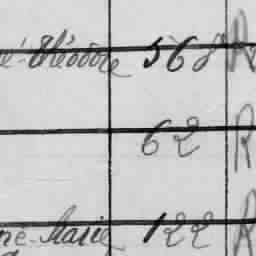 é-Théodore 568 R
62 R
né-Marie 122 R